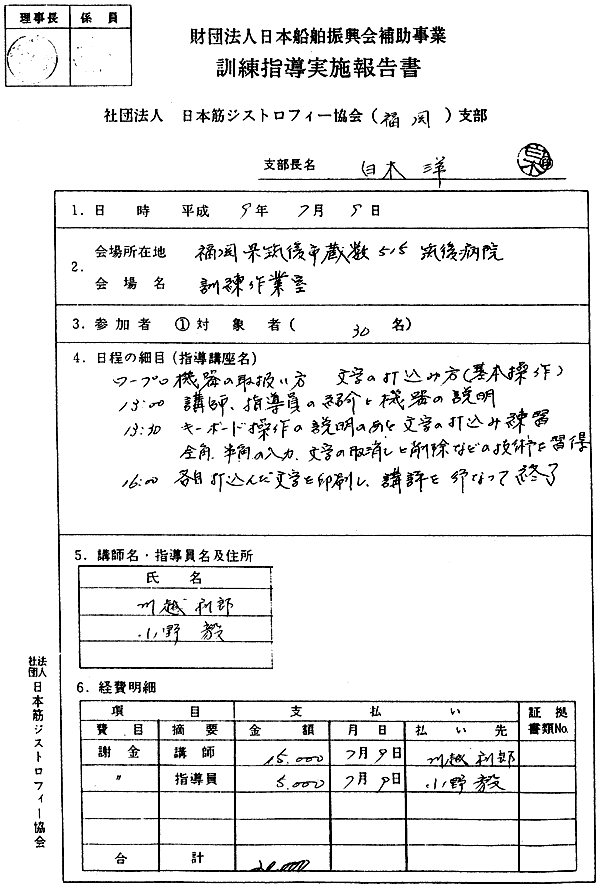 理事長 係員
財団法人日本船舶振興会補助事業
訓練指導実施報告書
社団法人 日本筋ジストロフィー協会(福岡)支部
支部長名 白木洋
1.日 時 平成 9年 7月 9日
2.会場所在地 福岡県筑後市蔵数515 筑後病院
会場名 訓練作業室
3.参加者 ①対象者( 30名)
4.日程の細目(指導講座名)
ワープロ機器の取扱い方 文字の打込み方(基本操作)
13:00 講師、指導員の紹介と機器の説明
13:30 キーボード操作の説明のあと文字の打込み練習
全角、半角の入力、文字の取消しと削除などの技術を習得
16:00 各自打込んだ文字を印刷し、講評を行なって終了
5.講師名・指導員名及住所
氏名
川越利郎
小野毅
6.経費明細
項目 支払い 証拠書類No.
費目 摘要 金額 月日 払い先
謝金 講師 15,000 7月9日 川越利郎
〃 指導員 5,000 7月9日 小野毅
合計 20,000
社団法人 日本筋ジストロフィー協会